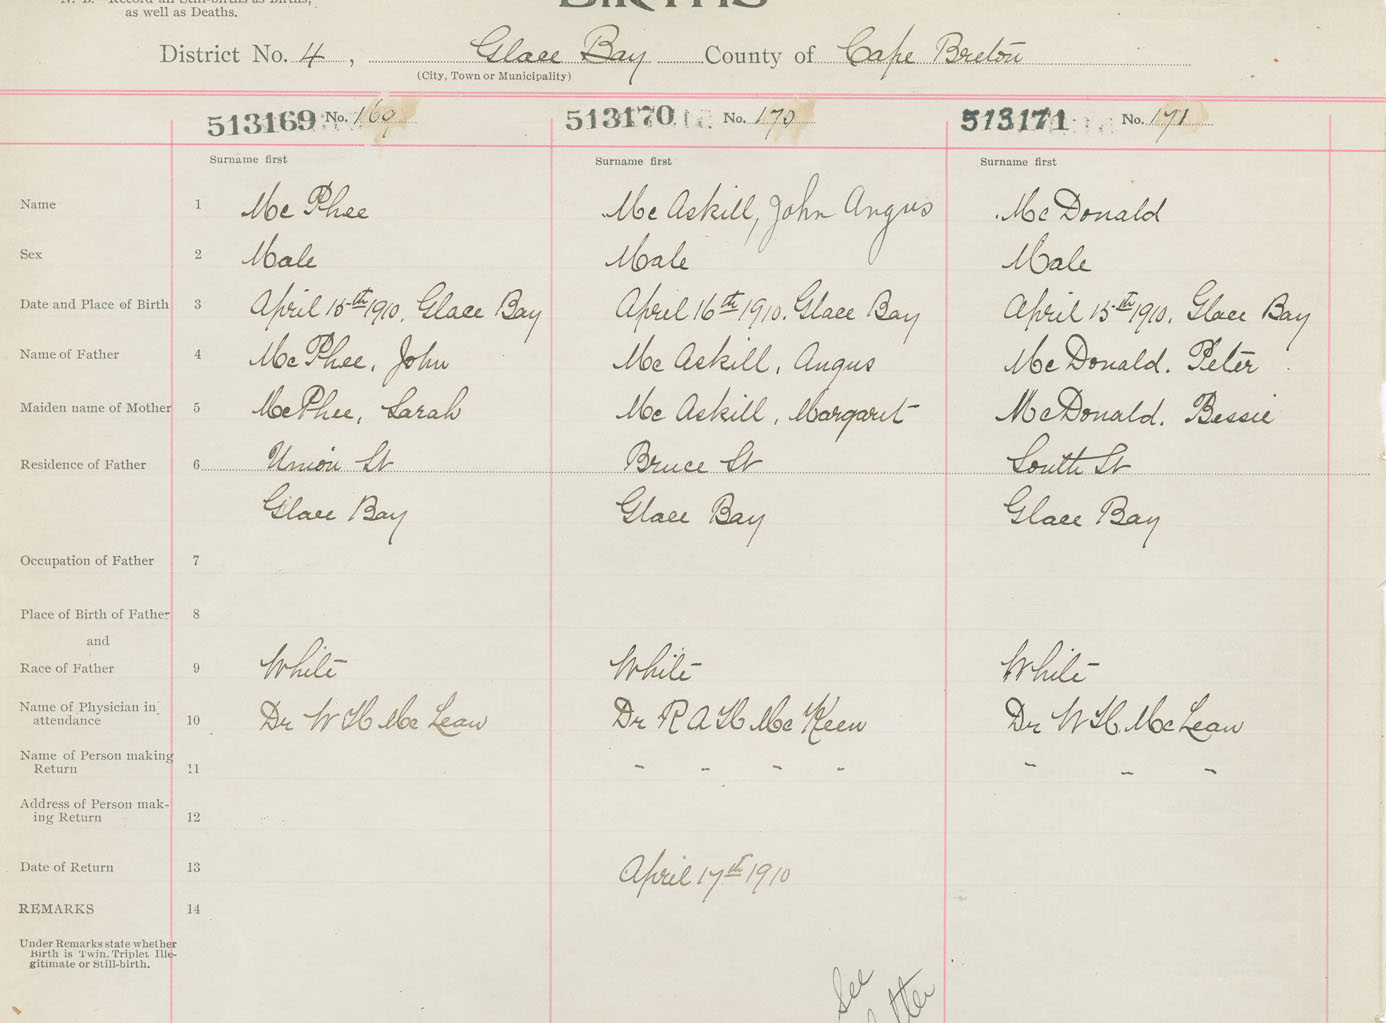 N. B.—Record all Still-births as Births,
as well as Deaths.
BIRTHS
District No. 4, Glace Bay County of Cape Breton
(City, Town or Municipality)
513169 No. 169 513170 No. 170 513171 No. 171
Surname first Surname first Surname first
Name 1 Mc Phee Mc Askill, John Angus Mc Donald
Sex 2 Male Male Male
Date and Place of Birth 3 April 15th 1910. Glace Bay April 16th 1910. Glace Bay April 15th 1910. Glace Bay
Name of Father 4 Mc Phee, John Mc Askill, Angus Mc Donald. Peter
Maiden name of Mother 5 McPhee, Sarah Mc Askill, Margaret McDonald. Bessie
Residence of Father 6 Union St Bruce St South St
Glace Bay Glace Bay Glace Bay
Occupation of Father 7
Place of Birth of Father 8
and
Race of Father 9 White White White
Name of Physician in
attendance 10 Dr W H Mc Lean Dr R A H Mc Keen Dr W H McLean
Name of Person making
Return 11 " " " " " " "
Address of Person mak-
ing Return 12
Date of Return 13 April 17th 1910
REMARKS 14
Under Remarks state whether
Birth is Twin, Triplet Ille-
gitimate or Still-birth.
See